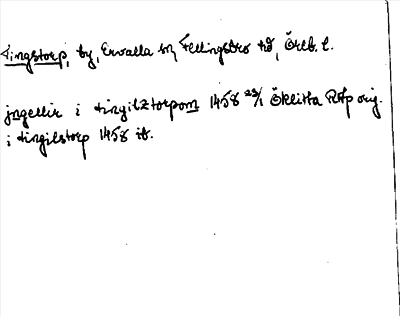 Tingstorp, by, Ervalla sn, Fellingsbro hd, Öreb. l.
jngellir i tingilztorpom 1458 23/1 Öklista RAp orig.
i tingilstorp 1458 ib.